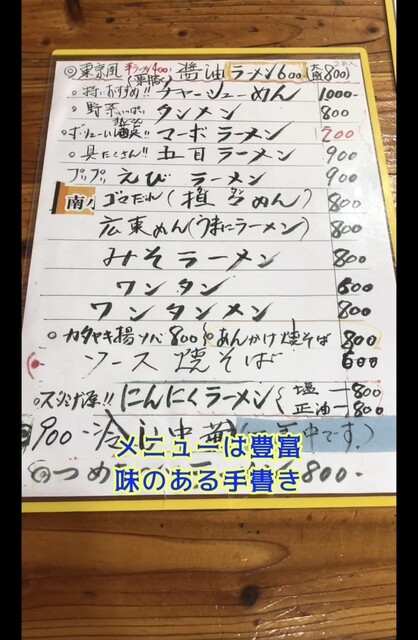 ◎東京風 半ラーメン400 醤油ラーメン600 (大盛800)
◦特におすすめ!! チャーシューめん 1000-
◦野菜いっぱい タンメン 800
◦ボリューム満点!! マーボラーメン 700
◦具だくさん!! 五目ラーメン 900
プリプリ えびラーメン 900
ゴマだれ(担々めん) 800
広東めん(うまにラーメン) 800
みそラーメン 800
ワンタン 600
ワンタンメン 800
◦カタヤキ揚ソバ800 あんかけ焼そば 800
ソース焼そば 600
にんにくラーメン 塩-800
正油-800
900-冷し中華 中です。)
メニューは豊富
味のある手書き
800-